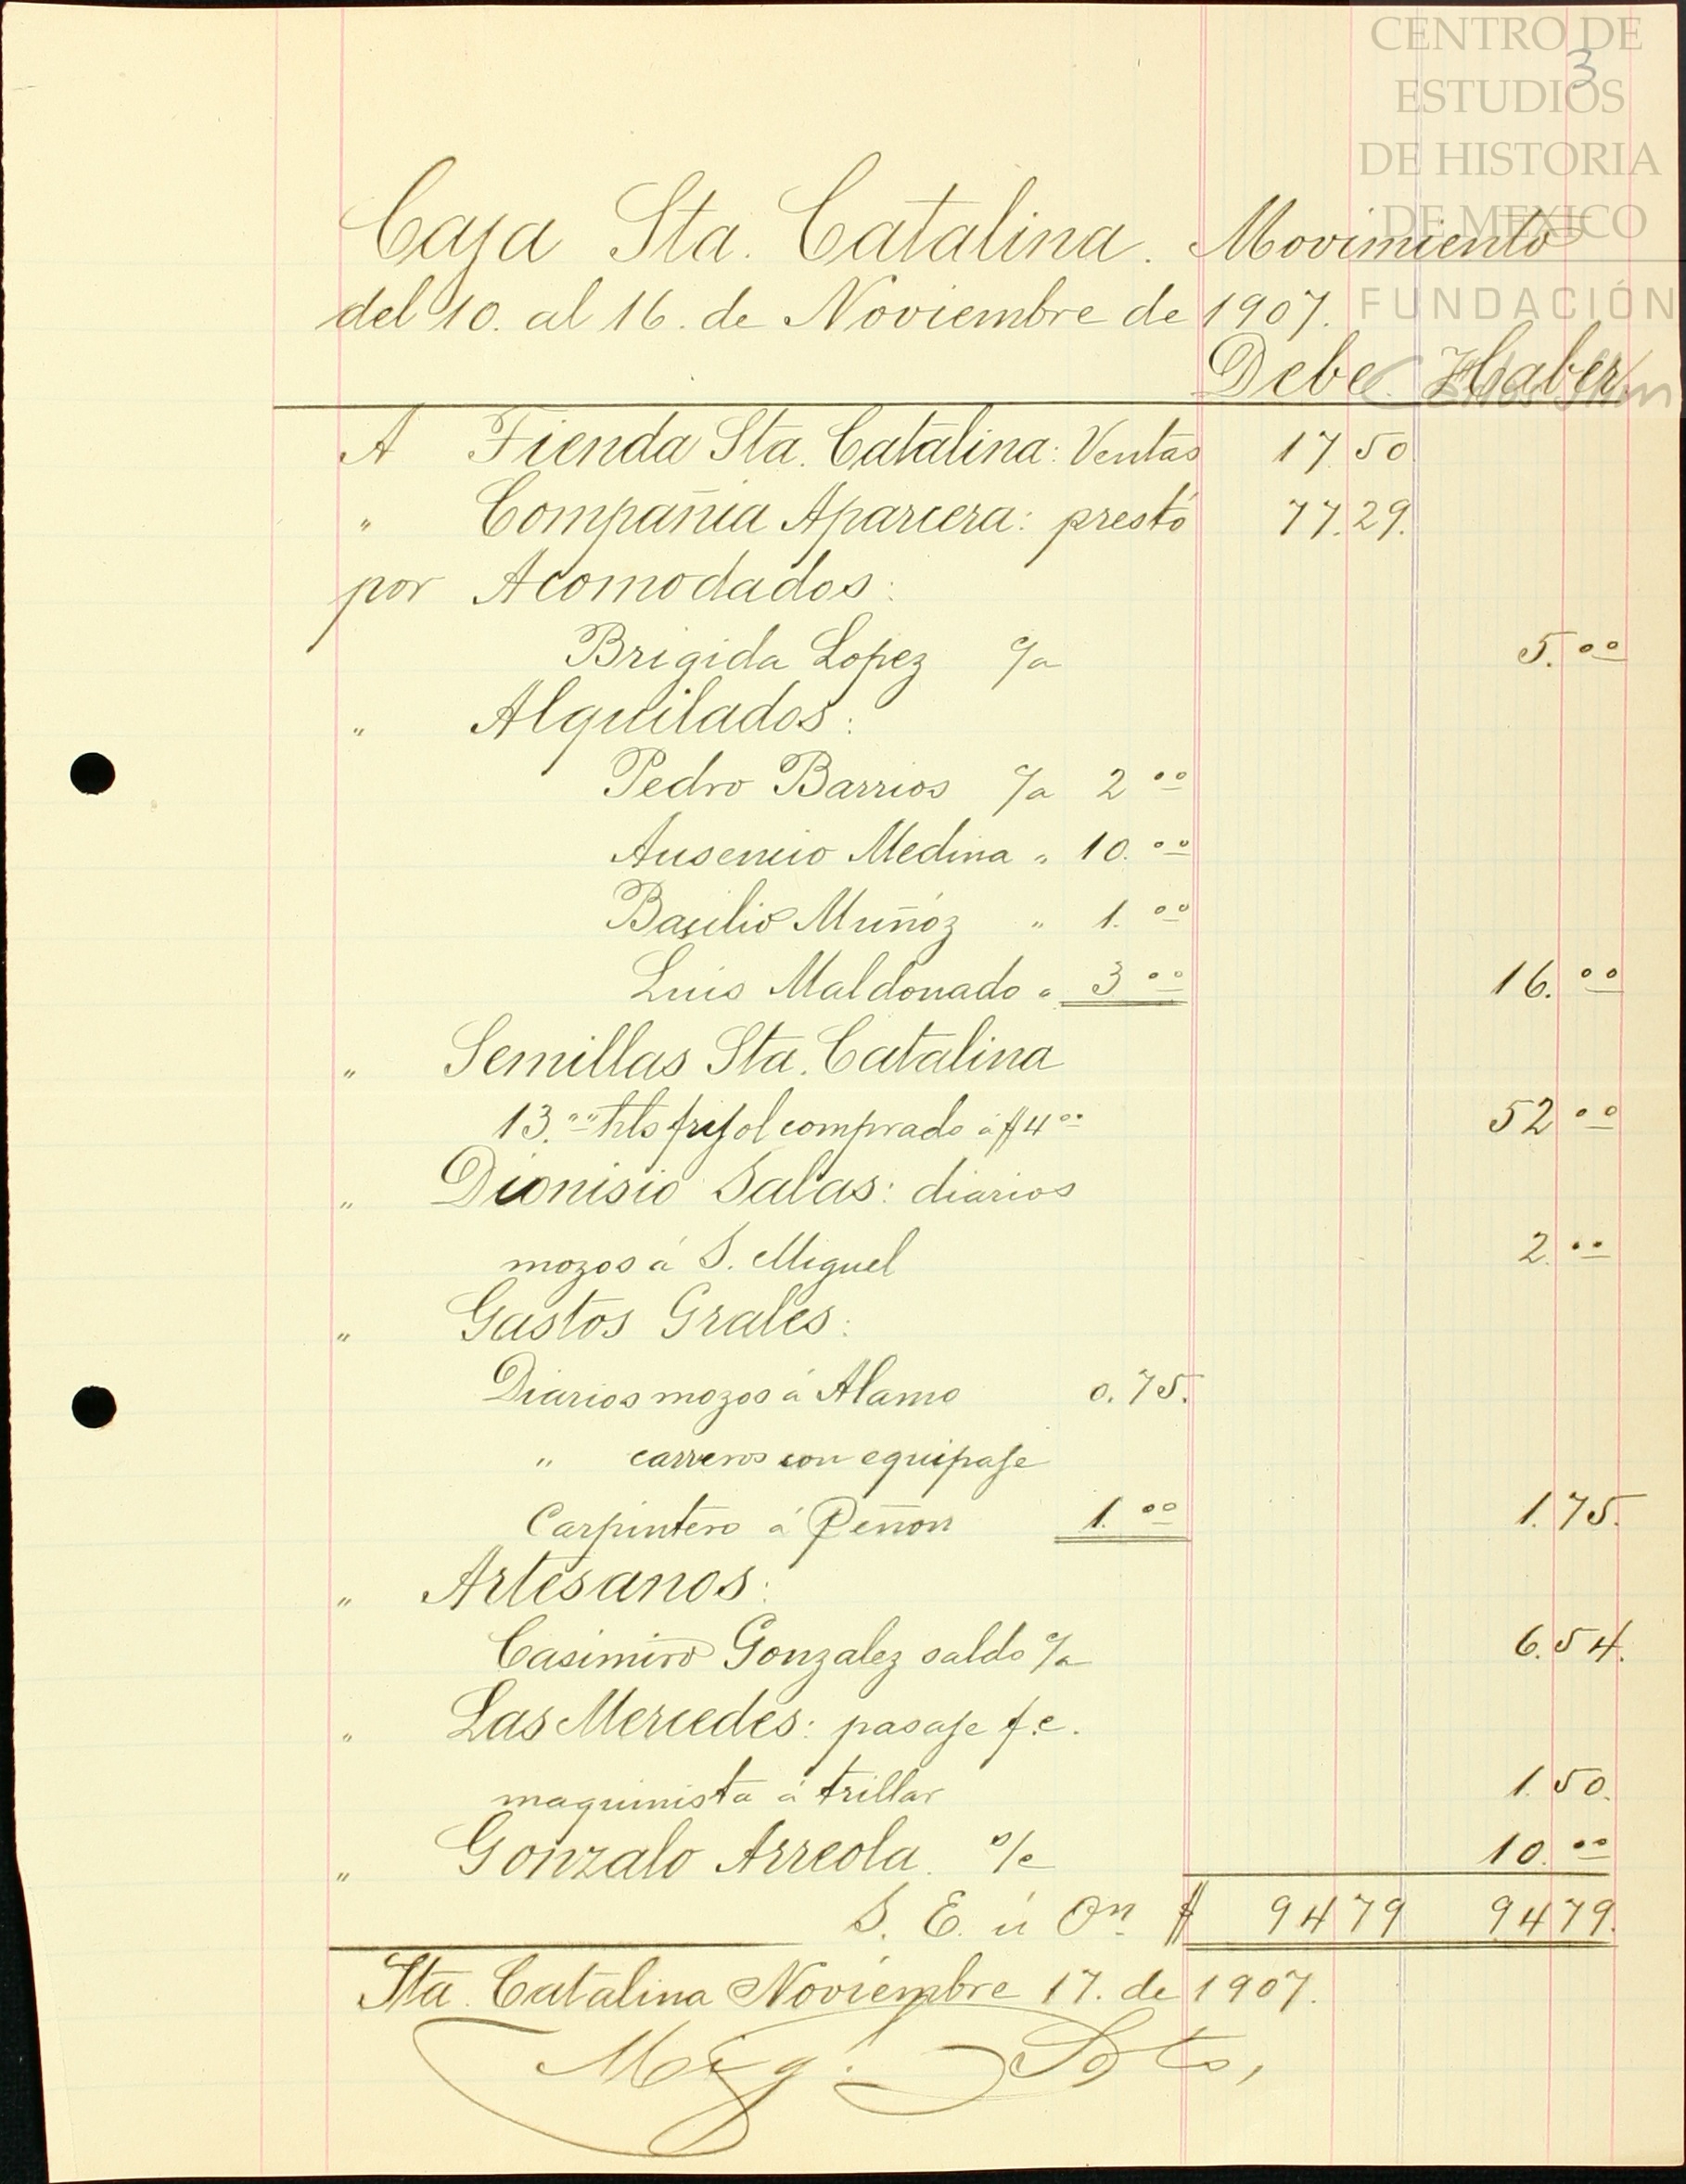 CENTRO DE
ESTUDIOS
DE HISTORIA
DE MEXICO
FUNDACIÓN
3
Caja Sta. Catalina. Movimiento
del 10. al 16. de Noviembre de 1907.
Debe. Haber.
A Tienda Sta. Catalina: Ventas 17 50
" Compañia Aparcera: prestó 77.29.
por Acomodados:
Brigida Lopez c/a 5.00
" Alquilados:
Pedro Barrios c/a 2 00
Ausencio Medina " 10.00
Basilio Muñóz " 1.00
Luis Maldonado " 3 00 16.00
" Semillas Sta. Catalina
13.00 hls frijol comprado á $4 00 52 00
" Dionisio Salas: diarios
mozos á S. Miguel 2.00
" Gastos Grales:
Diarios mozos á Alamo 0.75.
" carreros con equipaje
Carpintero á Peñon 1.00 1.75.
" Artesanos:
Casimiro Gonzalez saldo c/a 6.54.
" Las Mercedes: pasaje f.c.
maquinista á trillar 1.50.
" Gonzalo Arreola. s/c 10.00
S. E. ú On. $ 94 79 94 79.
Sta. Catalina Noviembre 17. de 1907.
Mig. Soto,